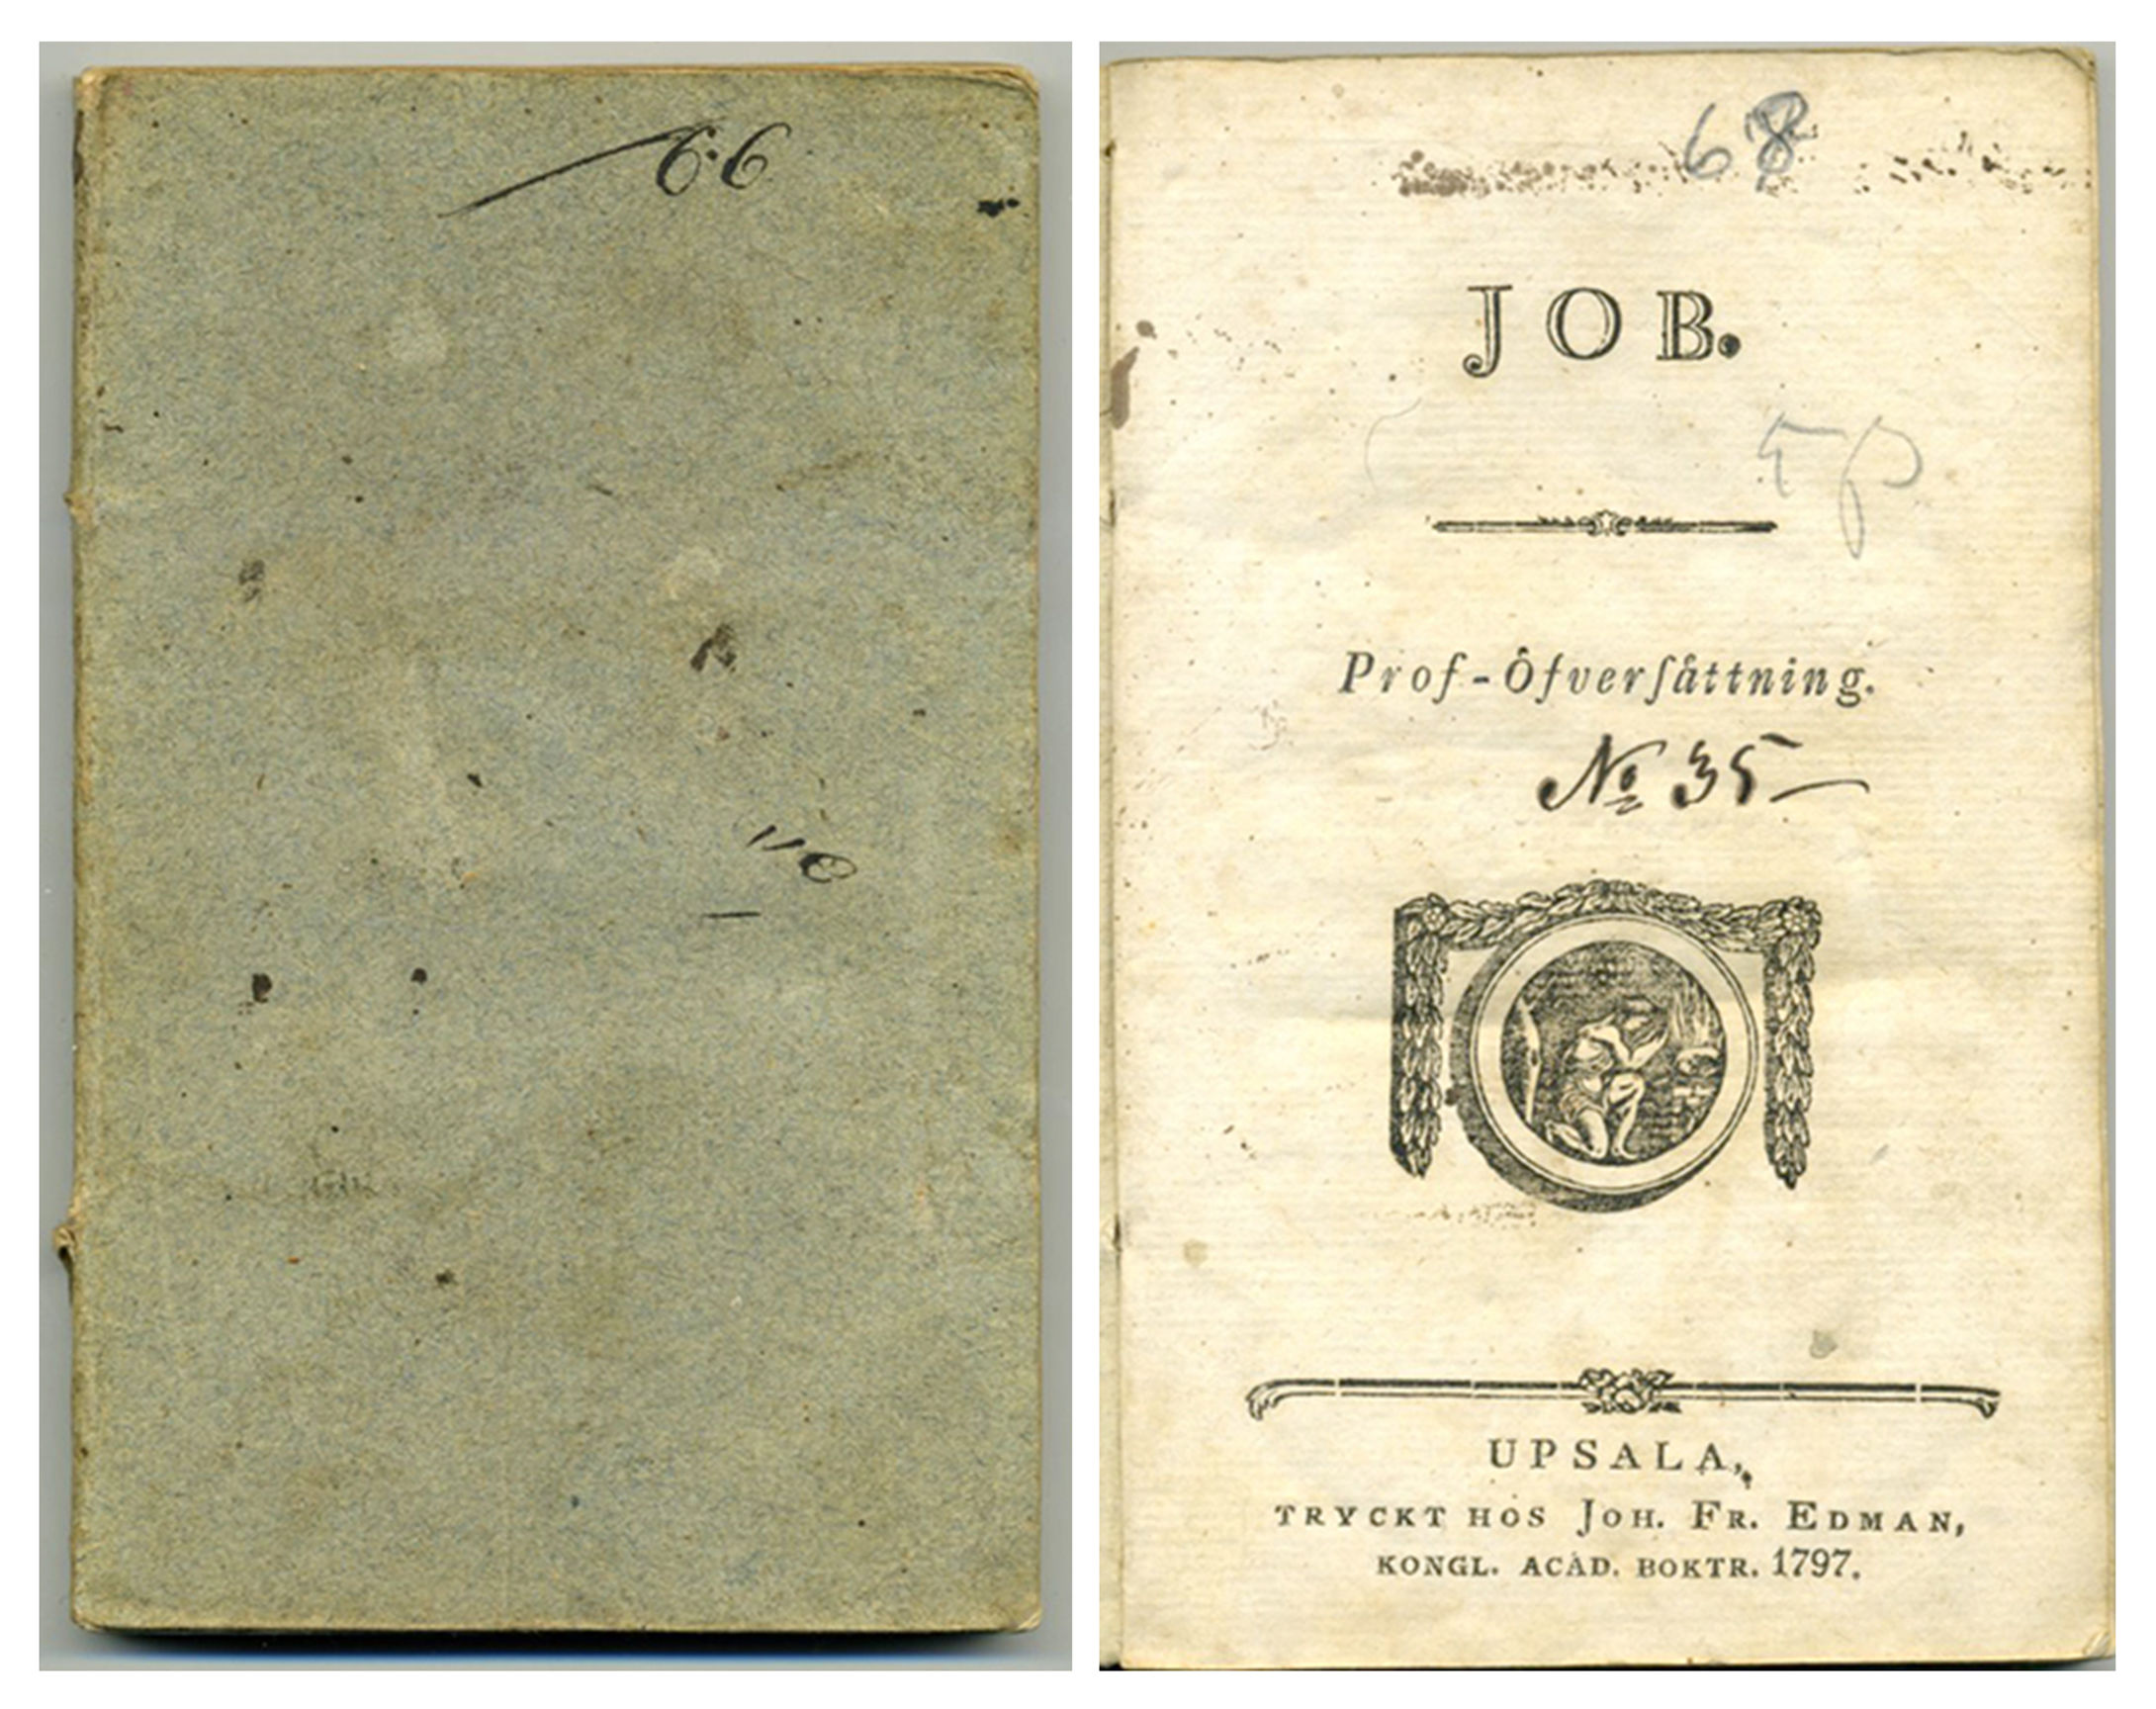 66
68
JOB.
Prof-Öfverſåttning.
No 35
UPSALA,
TRYCKT HOS JOH. FR. EDMAN,
KONGL. ACAD. BOKTR. 1797.